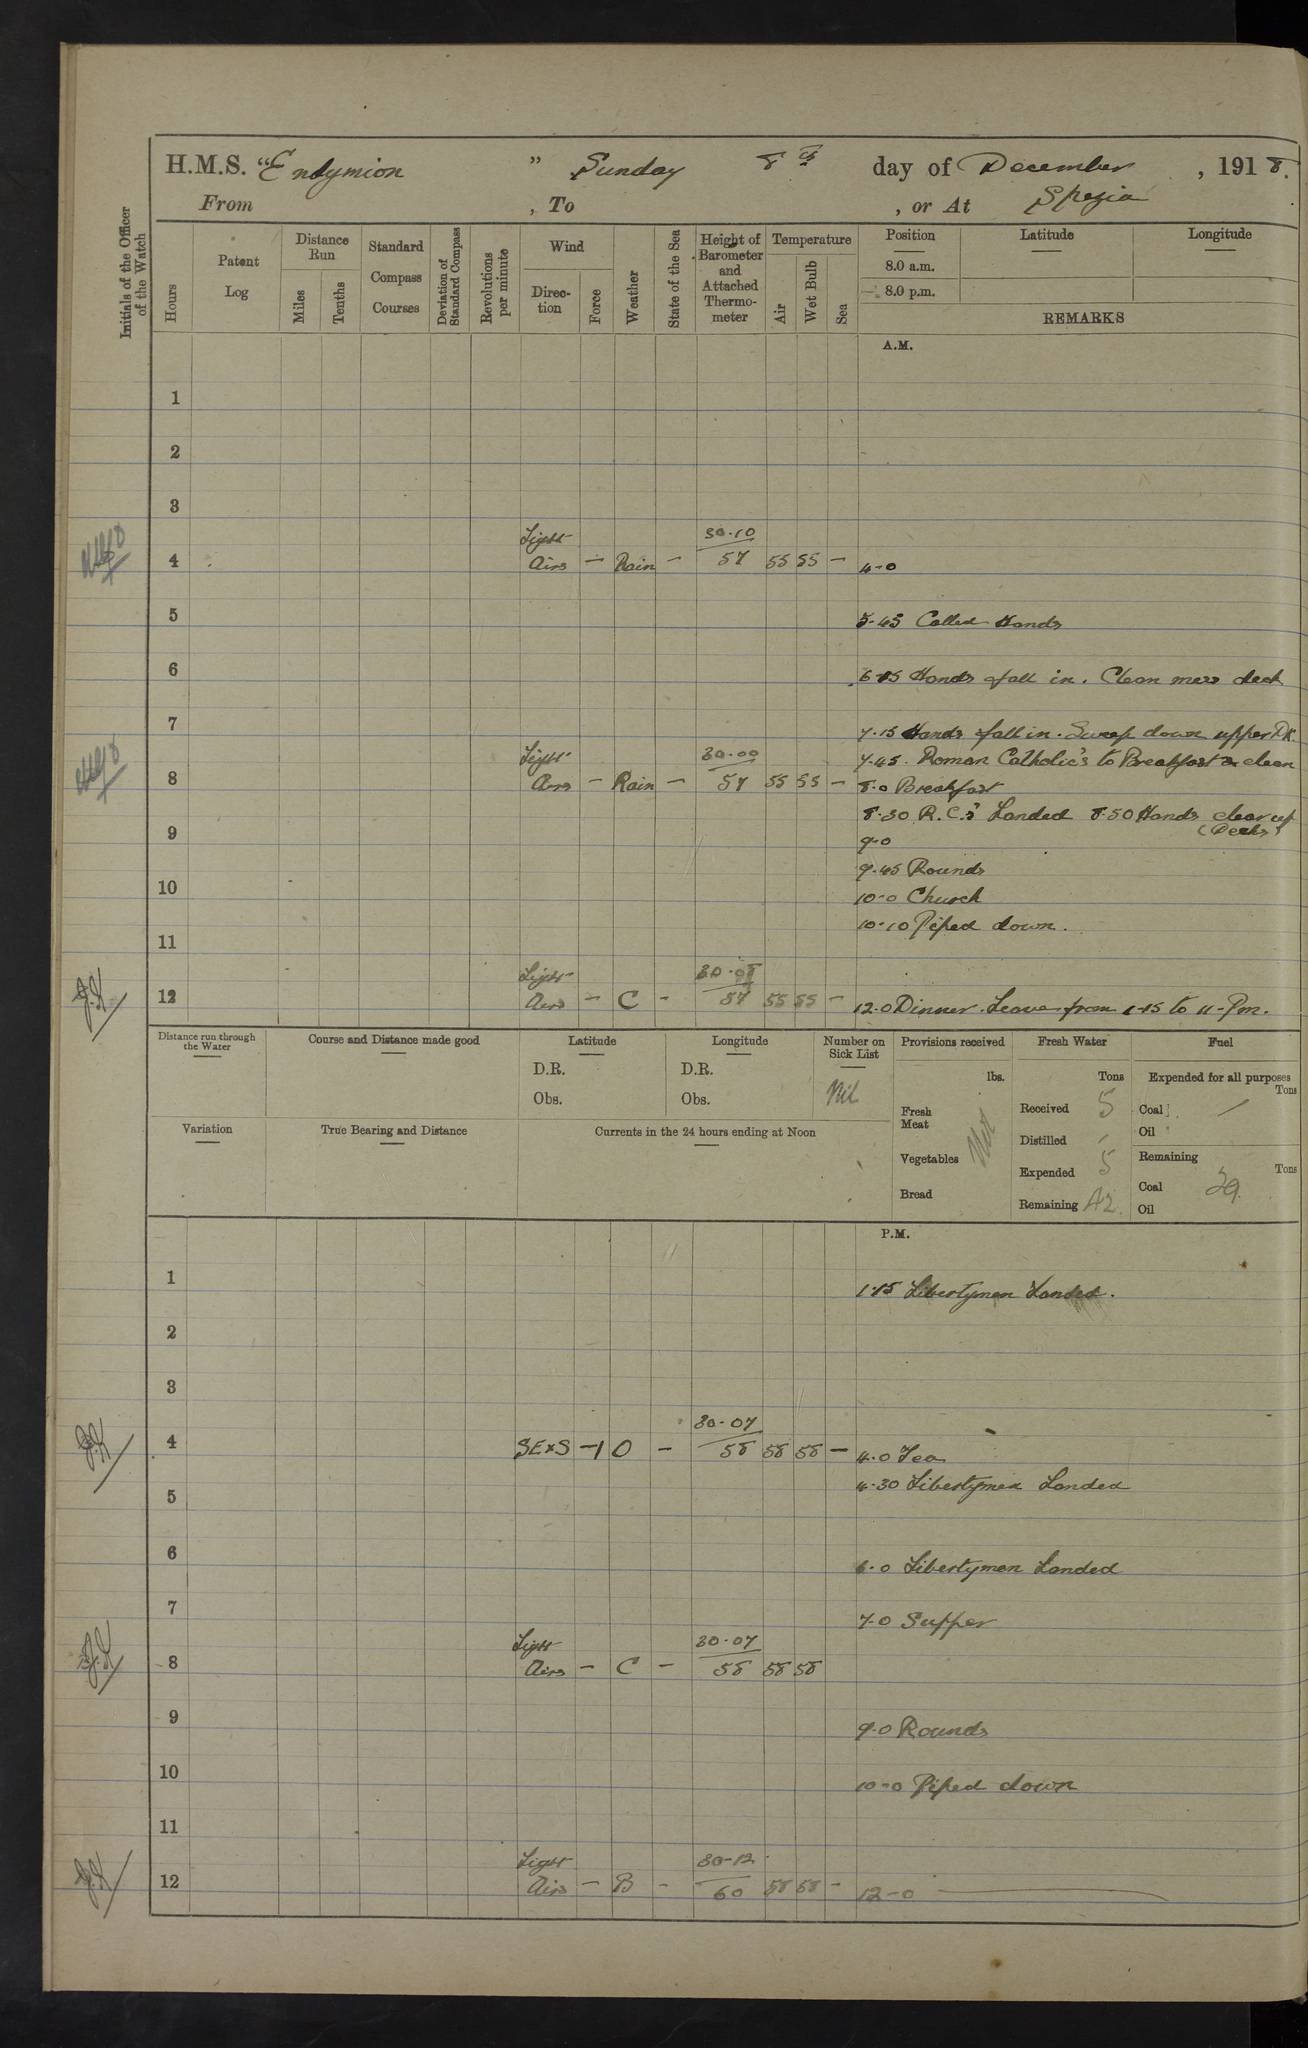 H.M.S. "Endymion" Sunday 8th day of December, 1918.
From , To , or At Spezia
Initials of the Officer of the Watch
Hours
Patent Log
Distance Run
Miles
Tenths
Standard Compass Courses
Deviation of Standard Compass
Revolutions per minute
Wind
Direction
Force
Weather
State of the Sea
Height of Barometer and Attached Thermometer
Temperature
Air
Wet Bulb
Sea
Position
8.0 a.m.
8.0 p.m.
Latitude
Longitude
REMARKS
A.M.
1
2
3
Light 30.10
4 Airs - Rain - 57 55 55 - 4-0
5 5.45 Called Hands
6 6.15 Hands fall in. Clean mess deck
7 7.15 Hands fall in. Sweep down upper Dk.
Light 30.00 7.45. Roman Catholic's to Breakfast & clean
8 Airs - Rain - 57 55 55 - 8.0 Breakfast
8.30 R.C.'s Landed 8.50 Hands clear up
9 (Decks)
9-0
9.45 Rounds
10 10-0 Church
10-10 Piped down.
11
Light 30.08
12 Airs - C - 57 55 55 - 12.0 Dinner. Leave from 1.15 to 11-Pm.
Distance run through the Water
Course and Distance made good
Latitude
D.R.
Obs.
Longitude
D.R.
Obs.
Number on Sick List
Nil
Provisions received
lbs.
Fresh Meat
Vegetables Nil
Bread
Fresh Water
Tons
Received 5
Distilled -
Expended 5
Remaining 42.
Fuel
Expended for all purposes
Tons
Coal -
Oil
Remaining
Tons
Coal 39.
Oil
Variation
True Bearing and Distance
Currents in the 24 hours ending at Noon
P.M.
1 1.15 Libertymen Landed.
2
3
30.07
4 SExS - 1 O - 58 58 58 - 4.0 Tea
4.30 Libertymen Landed
5
6 6.0 Libertymen Landed
7 7.0 Supper
Light 30.07
8 Airs - C - 58 58 58
9 9.0 Rounds
10 10-0 Piped down
11
Light 30-12
12 Airs - B - 60 58 58 - 12-0